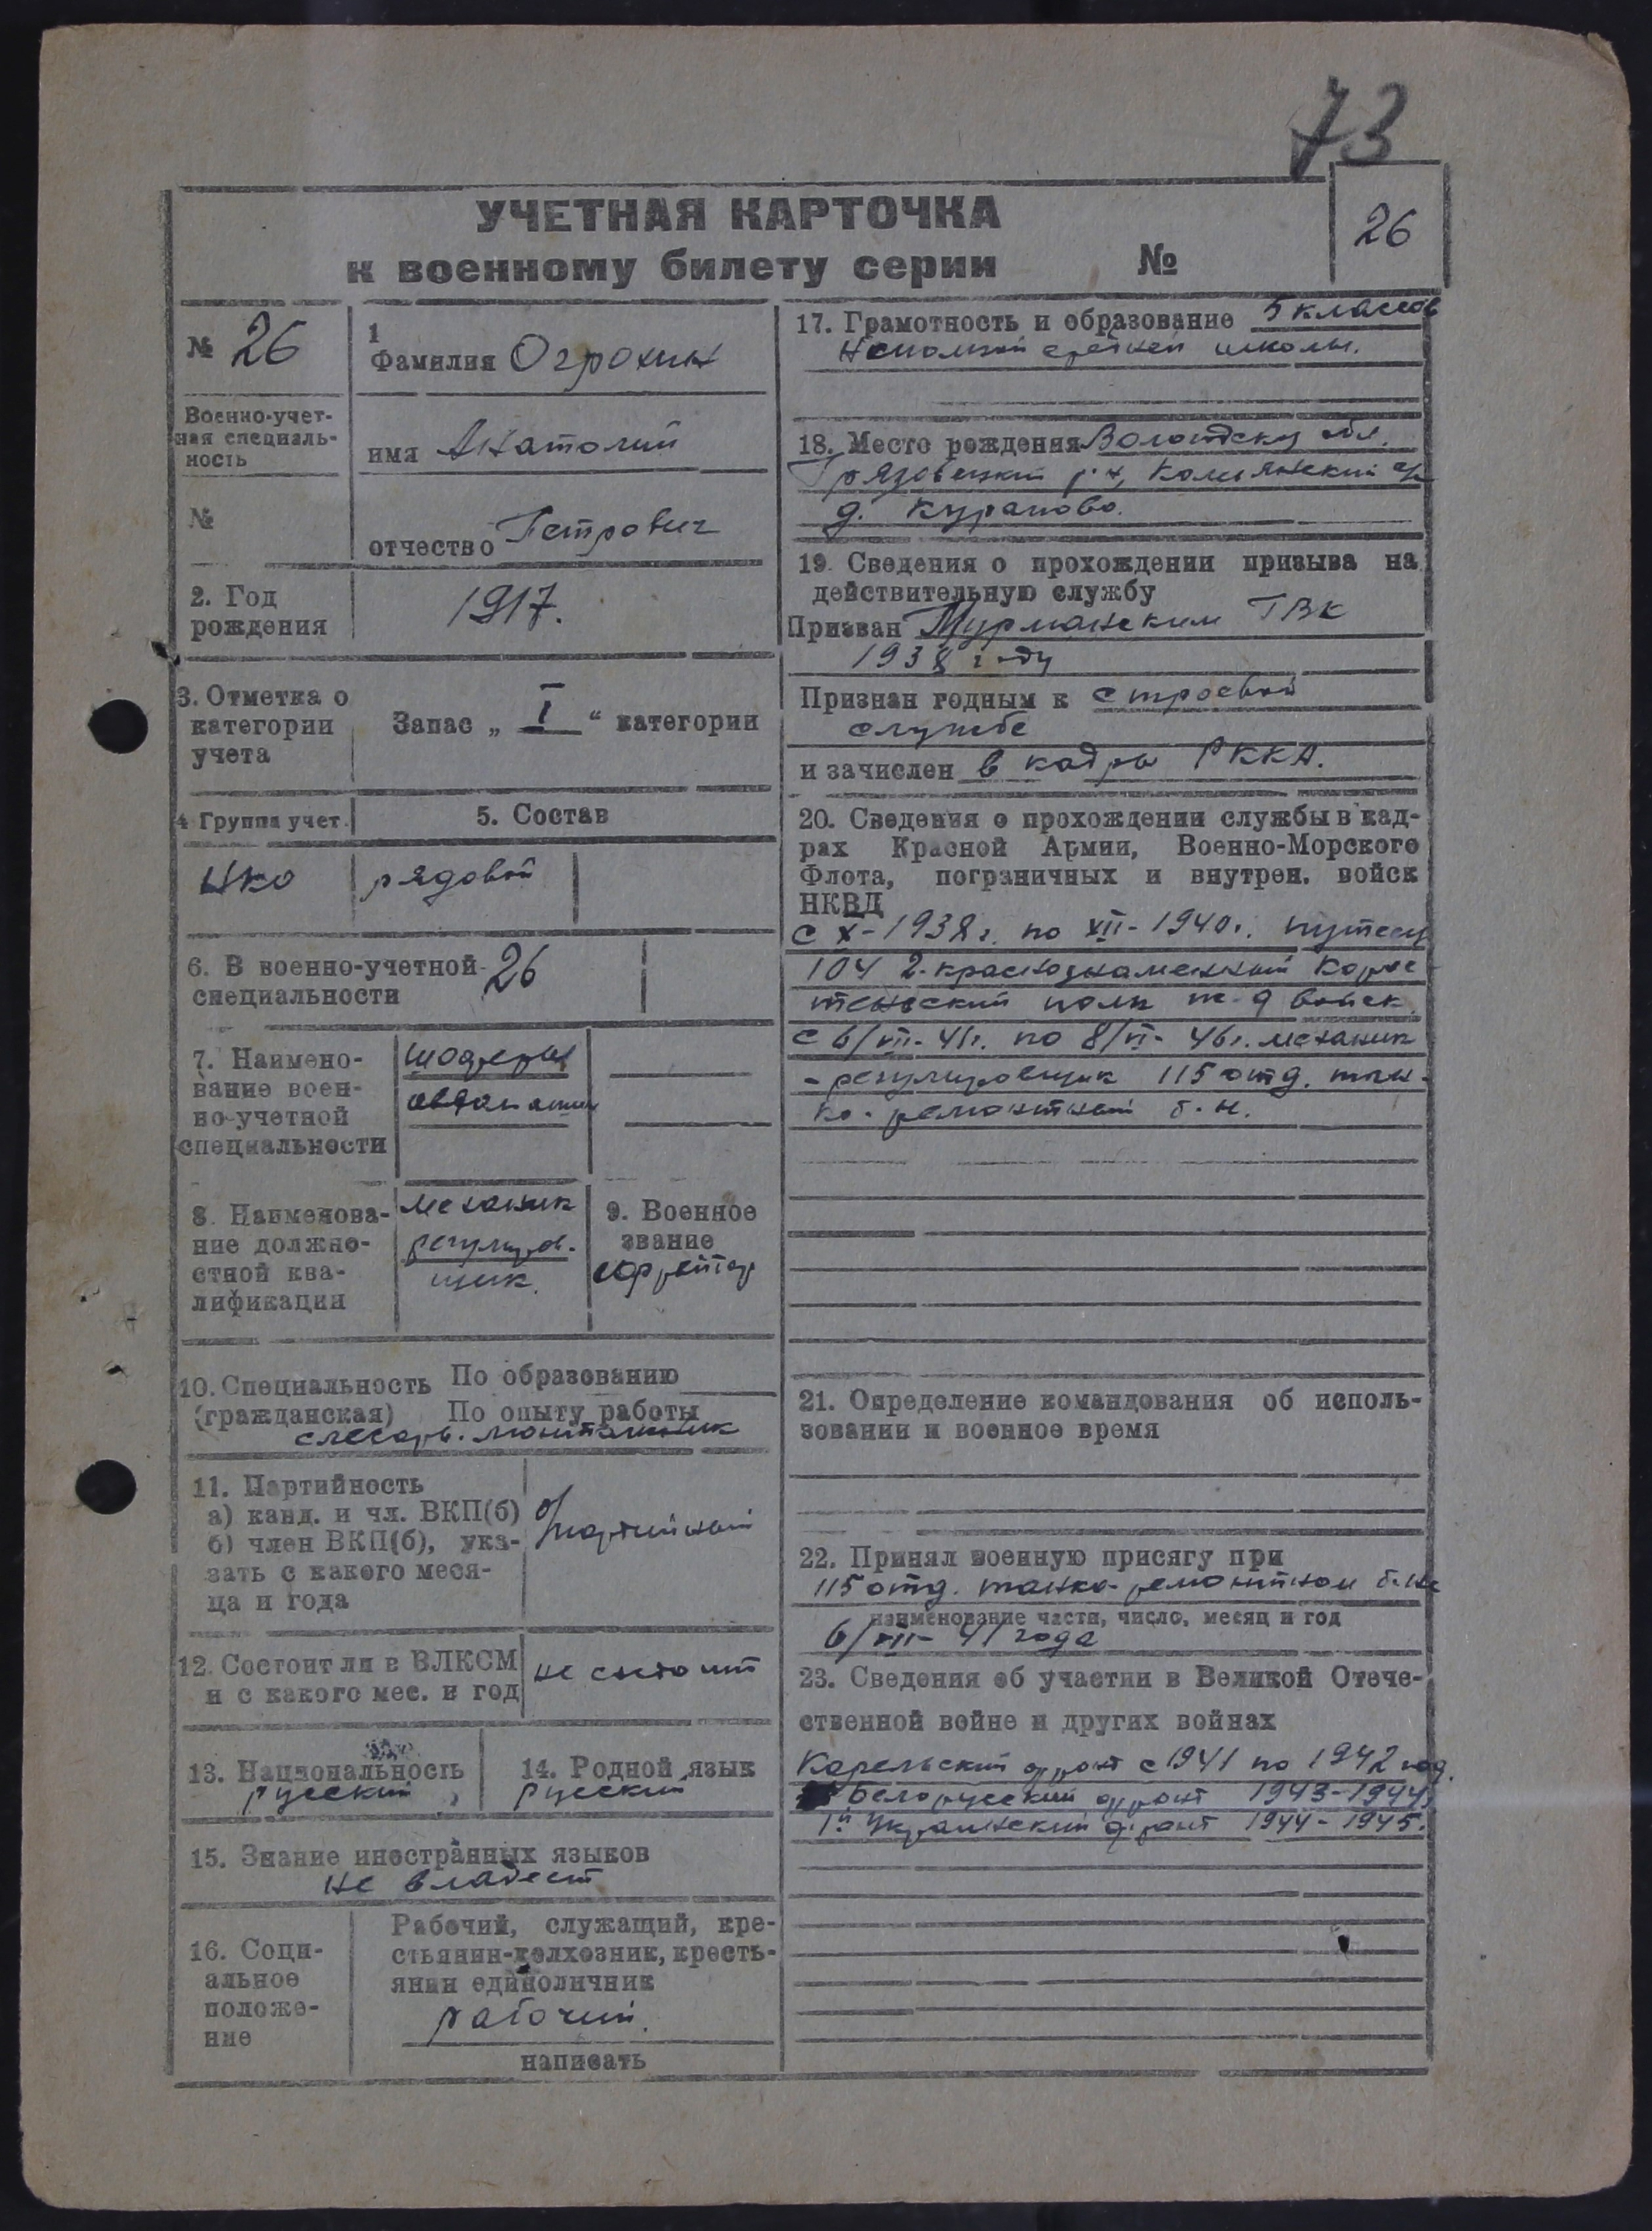 73
УЧЕТНАЯ КАРТОЧКА
к военному билету серии №
26
№ 26
Военно-учет-
ная специаль-
ность
№
1
Фамилия Огрохин
имя Анатолий
отчество Петрович
2. Год
рождения
1917.
3. Отметка о
категории
учета
Запас „ I “ категории
4 Группа учет.
5. Состав
НКО
рядовой
6. В военно-учетной
специальности
26
7. Наимено-
вание воен-
но-учетной
специальности
шоферы
автомашин
8. Наименова-
ние должно-
стной ква-
лификации
механик
регулиров-
щик.
9. Военное
звание
ефрейтор
10. Специальность
(гражданская)
По образованию
По опыту работы
слесарь-монтажник
11. Партийность
а) канд. и чл. ВКП(б)
б) член ВКП(б), ука-
зать с какого меся-
ца и года
б/партийный
12. Состоит ли в ВЛКСМ
и с какого мес. и год
не состоит
13. Национальность
русский
14. Родной язык
русский
15. Знание иностранных языков
не владеет
16. Соци-
альное
положе-
ние
Рабочий, служащий, кре-
стьянин-колхозник, кресть-
янин единоличник
рабочий.
написать
17. Грамотность и образование 5 классов
неполной средней школы.
18. Место рождения Вологодская обл.
Грязовецкий р-н,
д. Курапово.
19. Сведения о прохождении призыва на
действительную службу
Призван Мурманским ГВК
1938 году
Признан годным к строевой
службе
и зачислен в кадры РККА.
20. Сведения о прохождении службы в кад-
рах Красной Армии, Военно-Морского
Флота, пограничных и внутрен. войск
НКВД
с X-1938г. по XII-1940г.
104 2-краснознаменный
полк ж-д войск.
с 6/VII-41г. по 8/VI-46г. механик
-регулировщик 115 отд. тан-
ко-ремонтный б-н.
21. Определение командования об исполь-
зовании в военное время
22. Принял военную присягу при
115 отд. танко-ремонтном б-не
наименование части, число, месяц и год
6/VII-41 года
23. Сведения об участии в Великой Отече-
ственной войне и других войнах
Карельский фронт с 1941 по 1942 год.
Белорусский фронт 1943-1944
1й Украинский фронт 1944-1945.